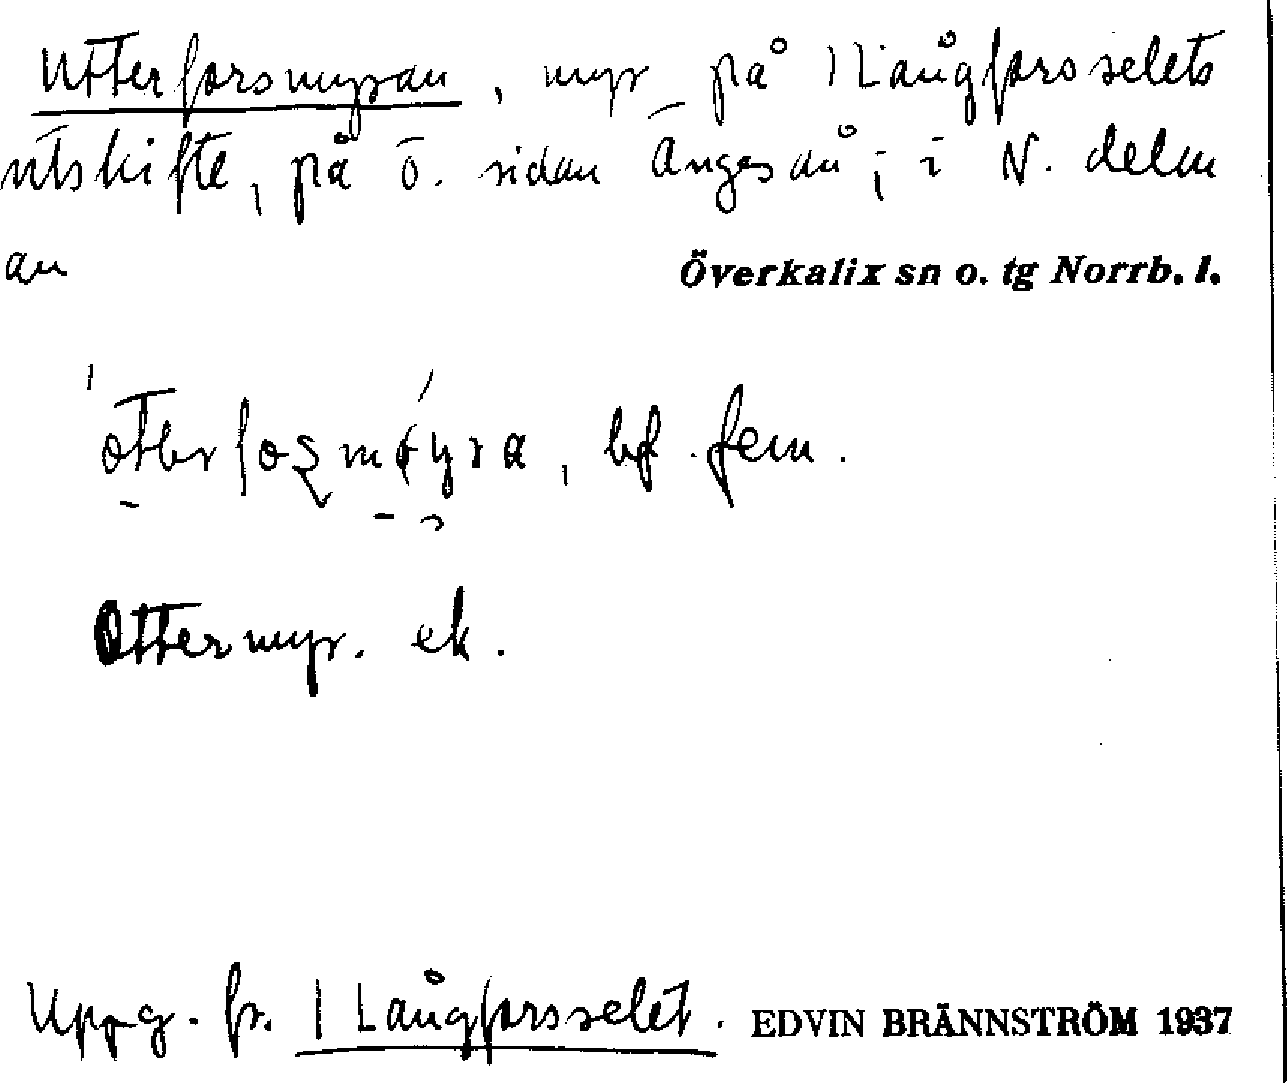 Utterforsmyran, myr på 1 Långforsselets
utskifte, på ö. sidan Ängesån; i N. delen
av
Överkalix sn o. tg Norrb. l.
bf. fem.
Ottermyr. ek.
Uppg. fr. 1 Långforsselet. EDVIN BRÄNNSTRÖM 1937